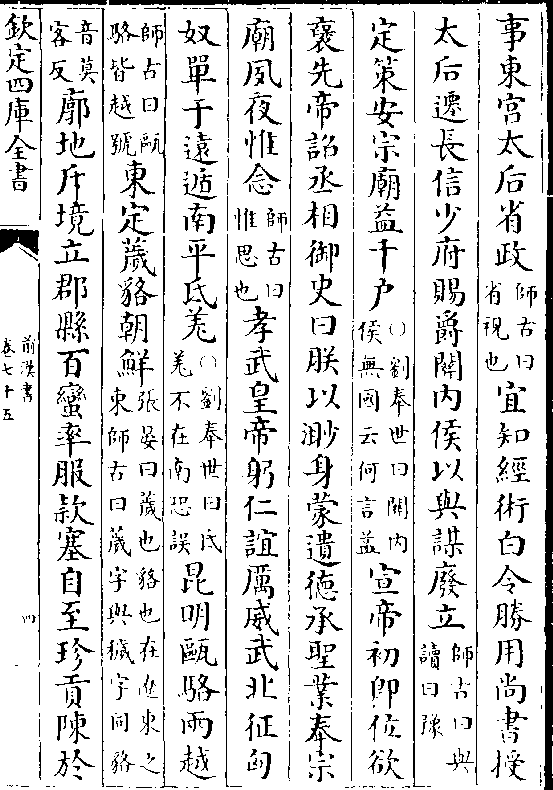 事東宮太后省政師古曰省視也宜知經術白令勝用尚書授
太后遷長信少府賜爵關内侯以與謀廢立師古曰與讀曰豫
定策安宗廟益千户○劉奉世曰關内侯無國云何言益宣帝初即位欲
襃先帝詔丞相御史曰朕以渺身蒙遺德承聖業奉宗
廟夙夜惟念師古曰惟思也孝武皇帝躬仁誼厲威武北征匈
奴單于遠遁南平氐羌○劉奉世曰氐羌不在南恐誤昆明甌駱兩越
師古曰甌駱皆越號東定薉貉朝鮮張晏曰薉也貉也在遼東之東師古曰薉字與穢字同貉
音莫客反廓地斥境立郡縣百蠻率服款塞自至珍貢陳於
欽定四庫全書
前漢書
卷七十五
四